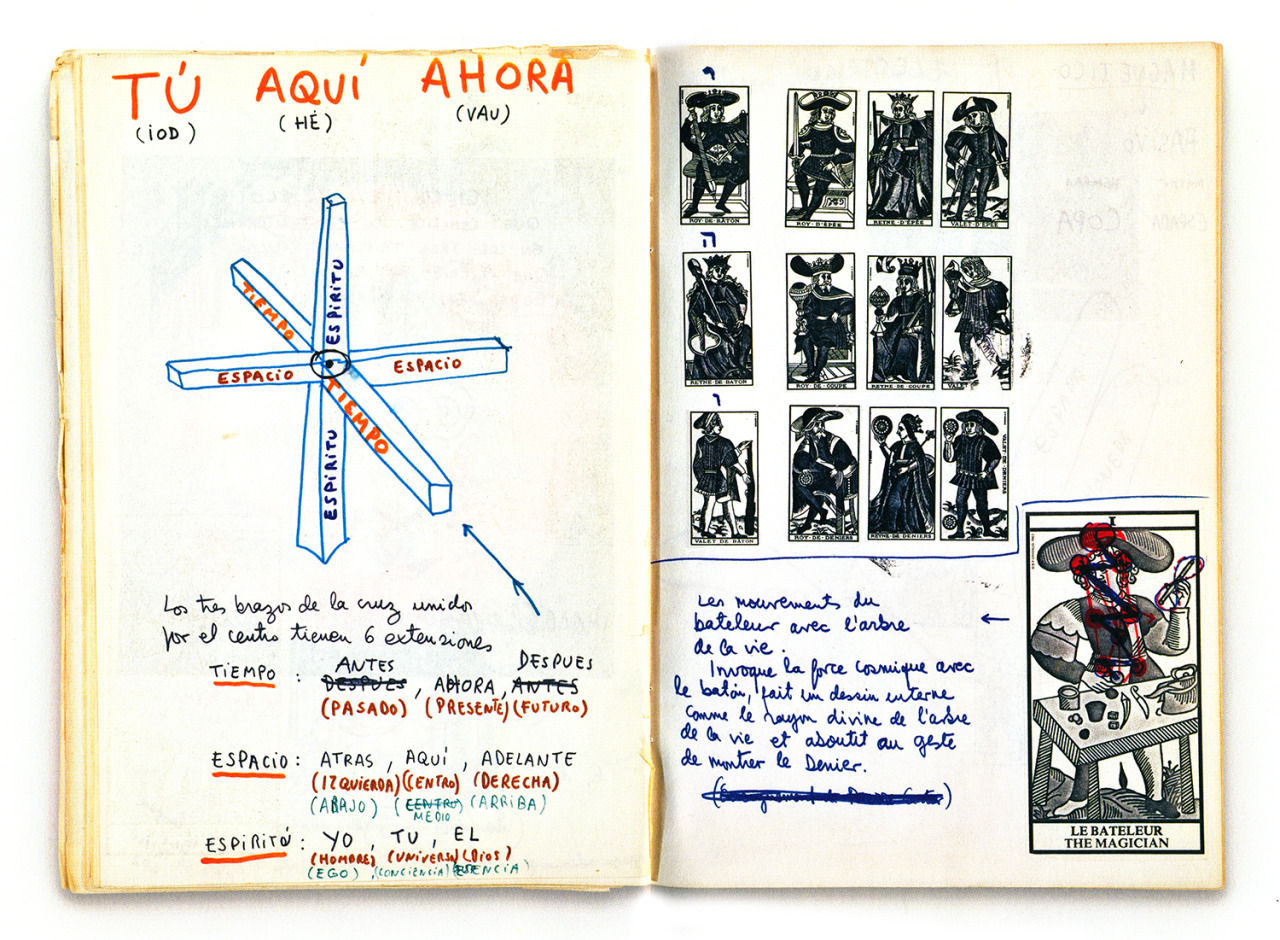 TÚ AQUÍ AHORA
(IOD) (HÉ) (VAU)
ESPIRITU
TIEMPO
ESPACIO
ESPACIO
TIEMPO
ESPIRITU
Los tres brazos de la cruz unidos
por el centro tienen 6 extensiones
TIEMPO : ANTES DESPUES
DESPUES, AHORA, ANTES
(PASADO) (PRESENTE) (FUTURO)
ESPACIO: ATRAS, AQUÍ, ADELANTE
(IZQUIERDA) (CENTRO) (DERECHA)
(ABAJO) (CENTRO) (ARRIBA)
MEDIO
ESPIRITÚ: YO, TU, EL
(HOMBRE) (UNIVERSO) (DIOS)
(EGO), (CONCIENCIA) ESENCIA)
י
ROY·DE·BATON
ROY·D'ÉPÉE
REYNE·D'ÉPÉE
VALET·D'ÉPÉE
ה
REYNE·DE·BATON
ROY·DE·COUPE
REYNE·DE·COUPE
VALE
ו
VALET·DE·BATON
ROY·DE·DENIERS
REYNE·DE·DENIERS
VALET·DE·DENIERS
Les mouvements du
bateleur avec l'arbre
de la vie.
Invoque la force cosmique avec
le baton, fait un dessin interne
comme le rayon divine de l'arbre
de la vie et aboutit au geste
de montrer le Denier.
I
LE BATELEUR
THE MAGICIAN
MAGNETICO
PASIVO
ESPADA COPA